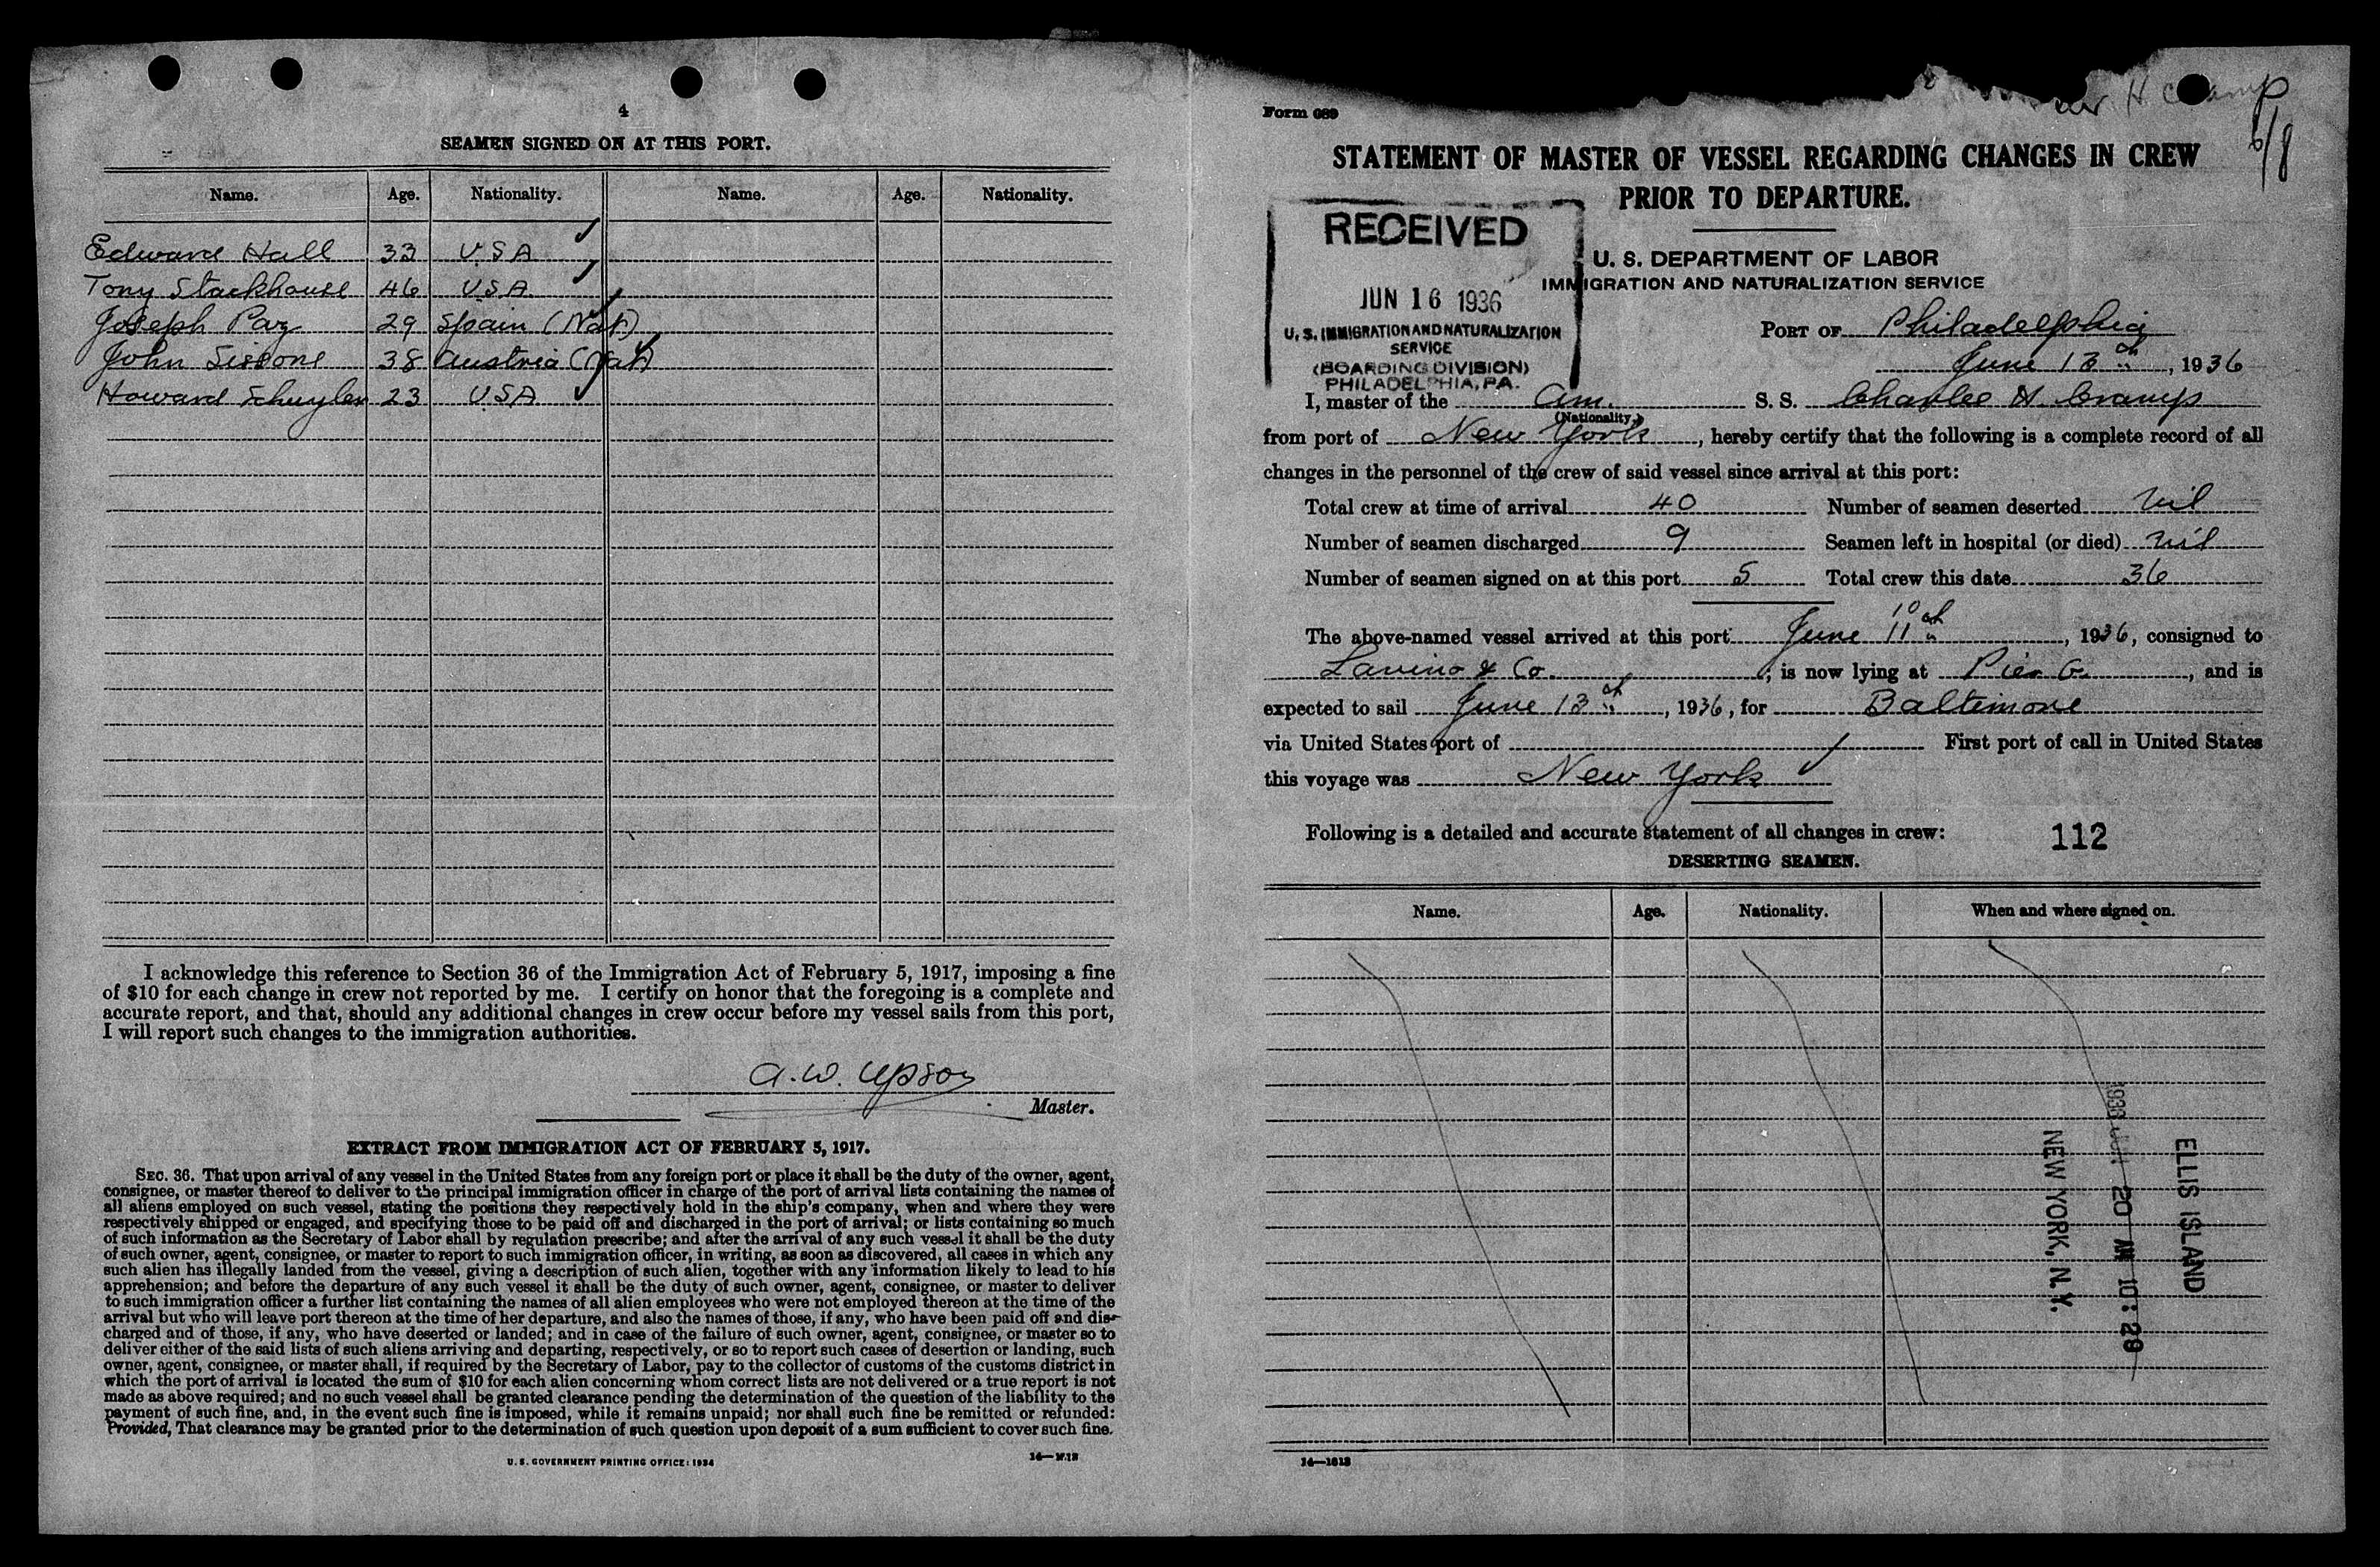 4
SEAMEN SIGNED ON AT THIS PORT.
Name. Age. Nationality. Name. Age. Nationality.
Edward Hall 33 U.S.A
Tony Stackhouse 46 U.S.A.
Joseph Paz 29 Spain (Nat)
John 38 Austria (Nat)
Howard Schuyler 23 U.S.A
I acknowledge this reference to Section 36 of the Immigration Act of February 5, 1917, imposing a fine
of $10 for each change in crew not reported by me. I certify on honor that the foregoing is a complete and
accurate report, and that, should any additional changes in crew occur before my vessel sails from this port,
I will report such changes to the immigration authorities.
A. W. Upson
Master.
EXTRACT FROM IMMIGRATION ACT OF FEBRUARY 5, 1917.
SEC. 36. That upon arrival of any vessel in the United States from any foreign port or place it shall be the duty of the owner, agent,
consignee, or master thereof to deliver to the principal immigration officer in charge of the port of arrival lists containing the names of
all aliens employed on such vessel, stating the positions they respectively hold in the ship's company, when and where they were
respectively shipped or engaged, and specifying those to be paid off and discharged in the port of arrival; or lists containing so much
of such information as the Secretary of Labor shall by regulation prescribe; and after the arrival of any such vessel it shall be the duty
of such owner, agent, consignee, or master to report to such immigration officer, in writing, as soon as discovered, all cases in which any
such alien has illegally landed from the vessel, giving a description of such alien, together with any information likely to lead to his
apprehension; and before the departure of any such vessel it shall be the duty of such owner, agent, consignee, or master to deliver
to such immigration officer a further list containing the names of all alien employees who were not employed thereon at the time of the
arrival but who will leave port thereon at the time of her departure, and also the names of those, if any, who have been paid off and dis-
charged and of those, if any, who have deserted or landed; and in case of the failure of such owner, agent, consignee, or master so to
deliver either of the said lists of such aliens arriving and departing, respectively, or so to report such cases of desertion or landing, such
owner, agent, consignee, or master shall, if required by the Secretary of Labor, pay to the collector of customs of the customs district in
which the port of arrival is located the sum of $10 for each alien concerning whom correct lists are not delivered or a true report is not
made as above required; and no such vessel shall be granted clearance pending the determination of the question of the liability to the
payment of such fine, and, in the event such fine is imposed, while it remains unpaid; nor shall such fine be remitted or refunded:
Provided, That clearance may be granted prior to the determination of such question upon deposit of a sum sufficient to cover such fine.
U. S. GOVERNMENT PRINTING OFFICE: 1934
H Cramp
6/8
Form 689
STATEMENT OF MASTER OF VESSEL REGARDING CHANGES IN CREW
PRIOR TO DEPARTURE.
RECEIVED
JUN 16 1936
U. S. IMMIGRATION AND NATURALIZATION
SERVICE
(BOARDING DIVISION)
PHILADELPHIA, PA.
U. S. DEPARTMENT OF LABOR
IMMIGRATION AND NATURALIZATION SERVICE
PORT OF Philadelphia
June 13th, 1936
I, master of the Am. S. S. Charles H. Cramp
(Nationality.)
from port of New York, hereby certify that the following is a complete record of all
changes in the personnel of the crew of said vessel since arrival at this port:
Total crew at time of arrival 40 Number of seamen deserted Nil
Number of seamen discharged 9 Seamen left in hospital (or died) Nil
Number of seamen signed on at this port 5 Total crew this date 36
The above-named vessel arrived at this port June 10 11th, 1936, consigned to
Lavino & Co.; is now lying at Pier G., and is
expected to sail June 13th, 1936, for Baltimore
via United States port of First port of call in United States
this voyage was New York
Following is a detailed and accurate statement of all changes in crew:
112
DESERTING SEAMEN.
Name. Age. Nationality. When and where signed on.
ELLIS ISLAND
20 AM 10:29
NEW YORK, N.Y.
14—1613